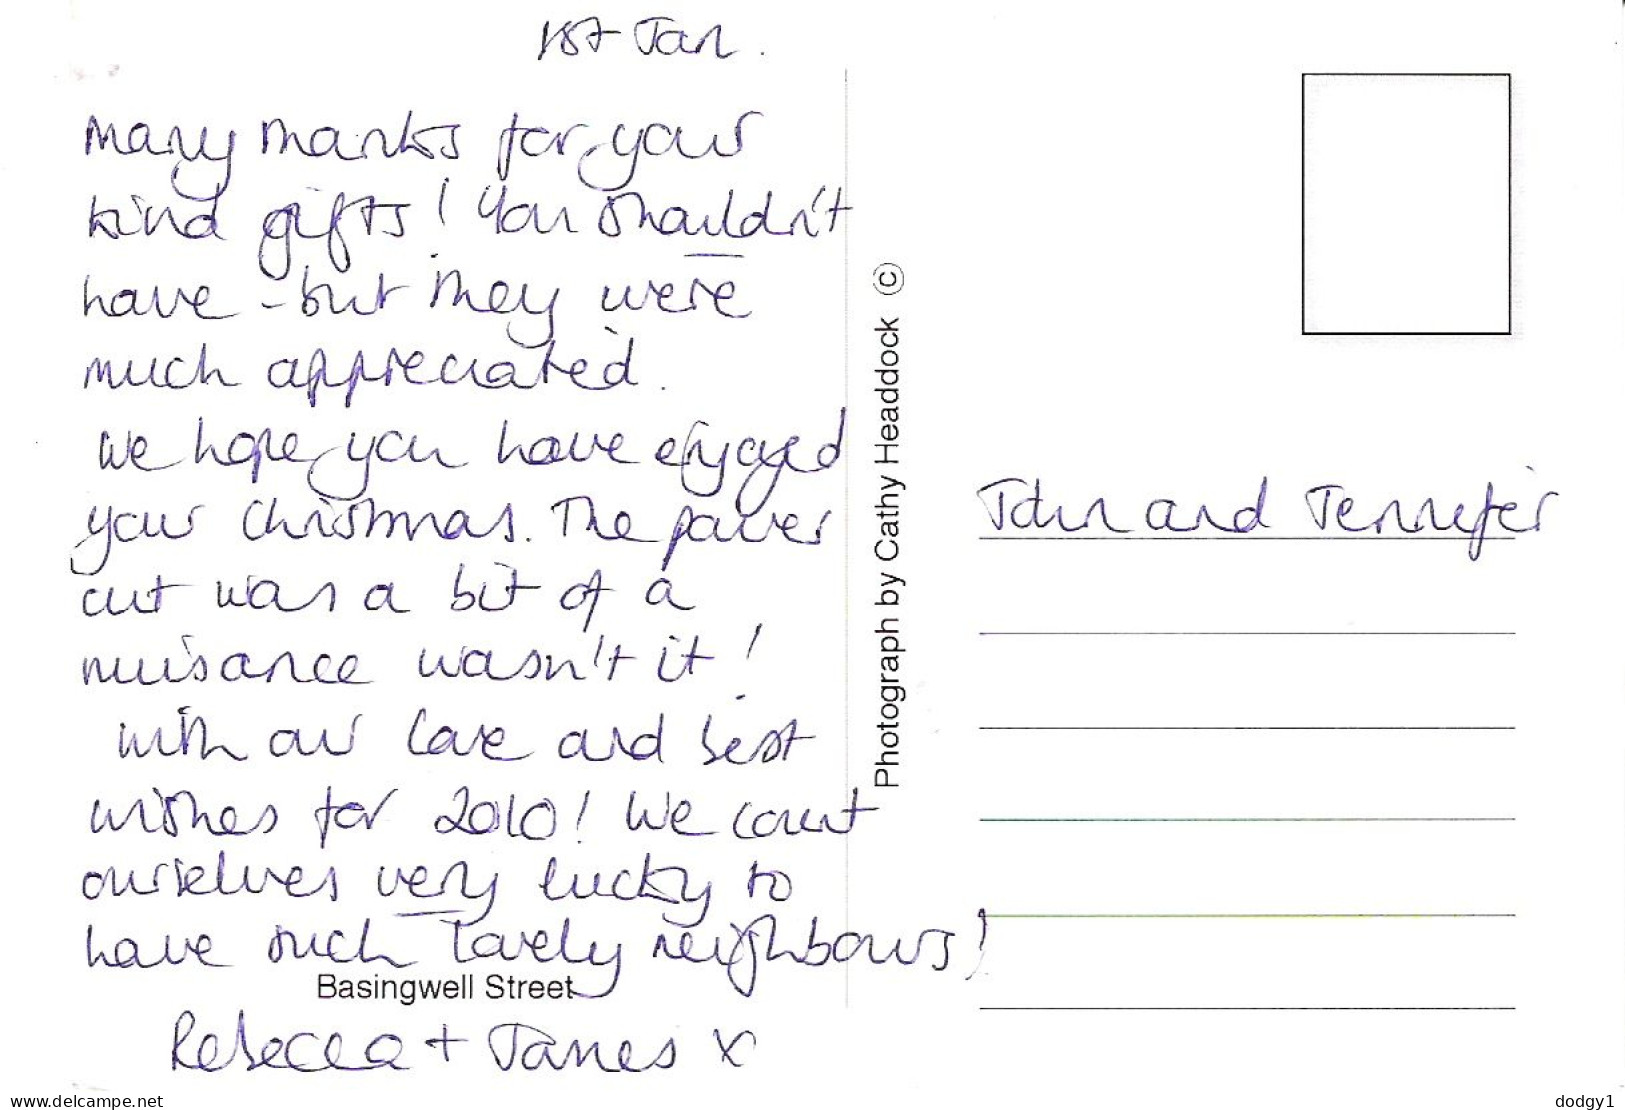 1st Jan.
Many thanks for your
kind gifts! You shouldn't
have - but they were
much appreciated.
We hope you have enjoyed
your Christmas. The power
cut was a bit of a
nuisance wasn't it!
With our love and best
wishes for 2010! We count
ourselves very lucky to
have such lovely neighbours!
Basingwell Street
Rebecca + James x
Photograph by Cathy Headdock ©
John and Jennifer
www.delcampe.net
dodgy1